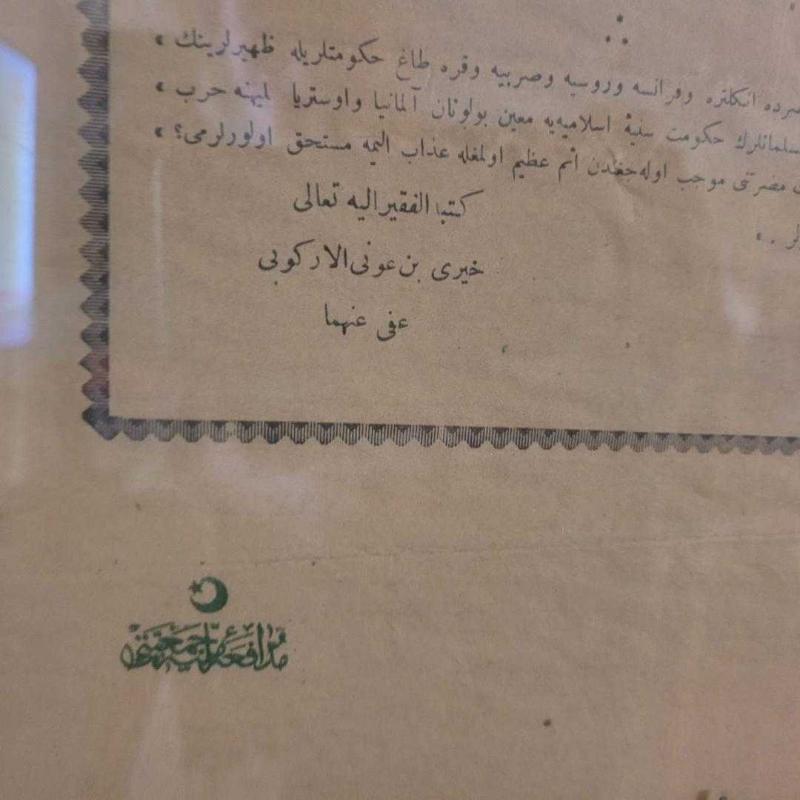 انكلتره وفرانسه وروسيه وصربيه وقره طاغ حكومتلريله ظهيرلرينك »
سلمانلرك حكومت سنيۀ اسلاميه‌يه معين بولونان آلمانيا واوستريا عليهنه حرب »
مضرتى موجب اوله‌جغندن اثم عظيم اولمغله عذاب اليمه مستحق اولورلرمى؟ »
كتبه الفقير اليه تعالى
خيرى بن عونى الاركوبى
عفى عنهما
مدافعۀ مليه جمعيتى